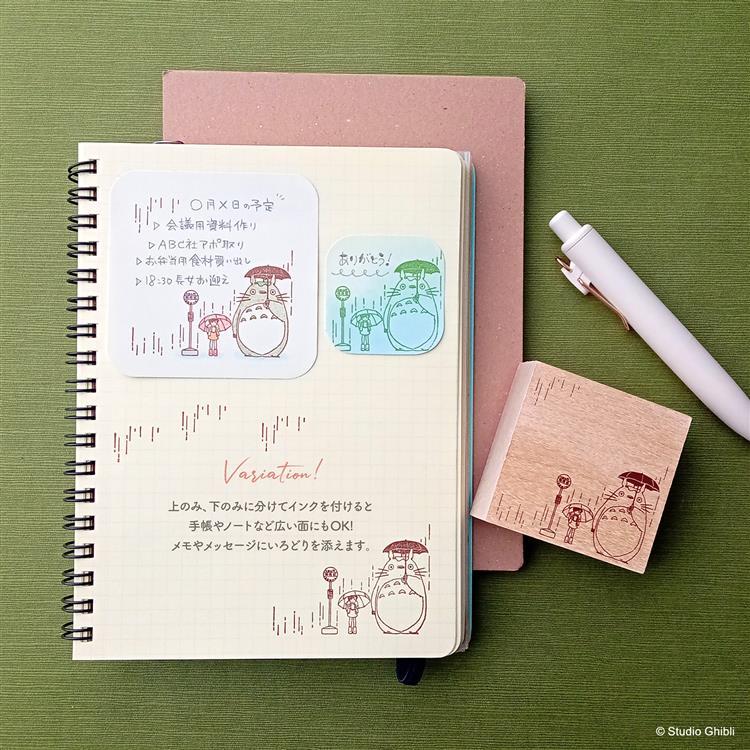 〇月×日の予定
▷ 会議用資料作り
▷ ABC社アポ取り
▷ お弁当用食材買い出し
▷ 18:30 長女お迎え
ありがとう!
Variation!
上のみ、下のみに分けてインクを付けると
手帳やノートなど広い面にもOK!
メモやメッセージにいろどりを添えます。
© Studio Ghibli